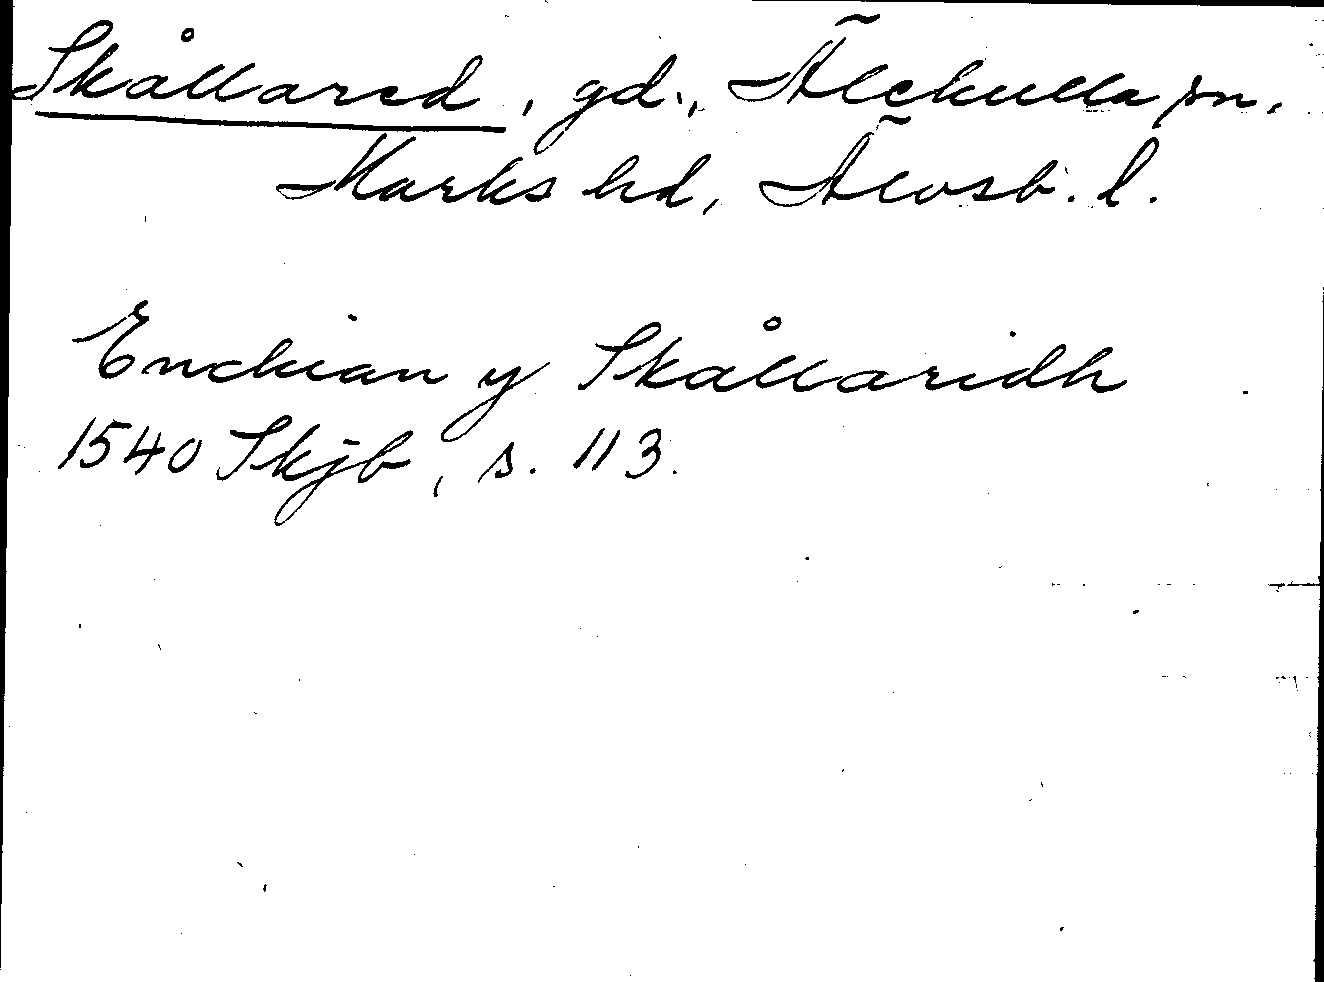 Skållared, gd., Älekulla sn.
Marks hd, Älvsb. l.
Enckian y Skållaridh
1540 Skjb, s. 113.